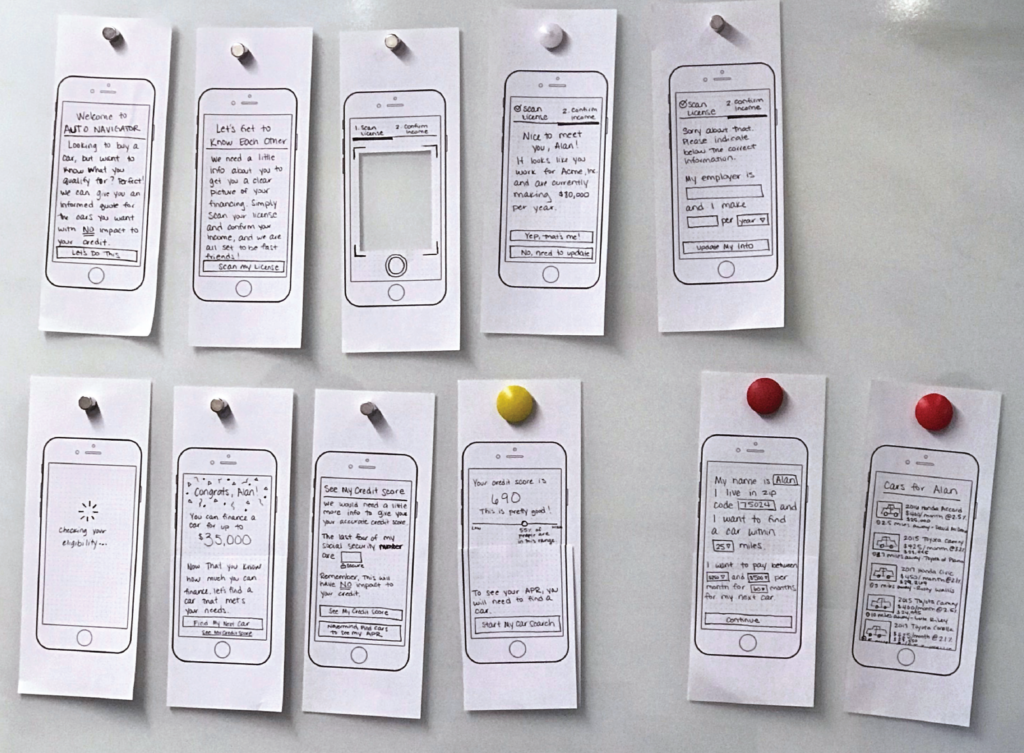 Welcome to
AUTO NAVIGATOR
Looking to buy a
car, but want to
know what you
qualify for? Perfect!
We can give you an
informed quote for
the cars you want
with NO impact to
your credit.
Let's Do This
Let's Get to
Know Each Other
We need a little
info about you to
get you a clear
picture of your
financing. Simply
scan your license
and confirm your
income, and we are
all set to be fast
friends!
Scan My License
1. Scan License
2. Confirm Income
Scan License
2. Confirm Income
Nice to meet
you, Alan!
It looks like you
work for Acme, Inc.
and are currently
making $80,000
per year.
Yep, that's me!
No, need to update
Scan License
2. Confirm Income
Sorry about that.
Please indicate
below the correct
information.
My employer is
and I make
per year
Update My Info
Checking your
eligibility...
Congrats, Alan!
You can finance a
car for up to
$35,000
Now That you know
how much you can
finance, let's find a
car that meets
your needs.
Find My Next Car
See My Credit Score
See My Credit Score
We would need a little
more info to give you
your accurate credit score.
The last four of my
social security number
are
Secure
Remember, This will
have NO impact to
your credit.
See My Credit Score
Nevermind, Find Cars
to See my APR.
Your credit score is
690
This is pretty good!
Low
people are
in this range.
To see your APR, you
will need to find a
car.
Start My Car Search
My name is Alan
I live in zip
code 75024 and
I want to find
a car within
25 miles.
I want to pay between
and per
month for months
for my next car
Continue
Cars for Alan
Honda Accord
2015 Toyota Camry
2017 Honda Civic
2015 Toyota Camry
2015 Toyota Corolla